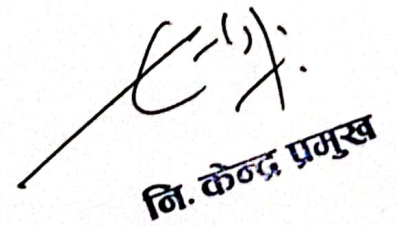 नि. केन्द्र प्रमुख